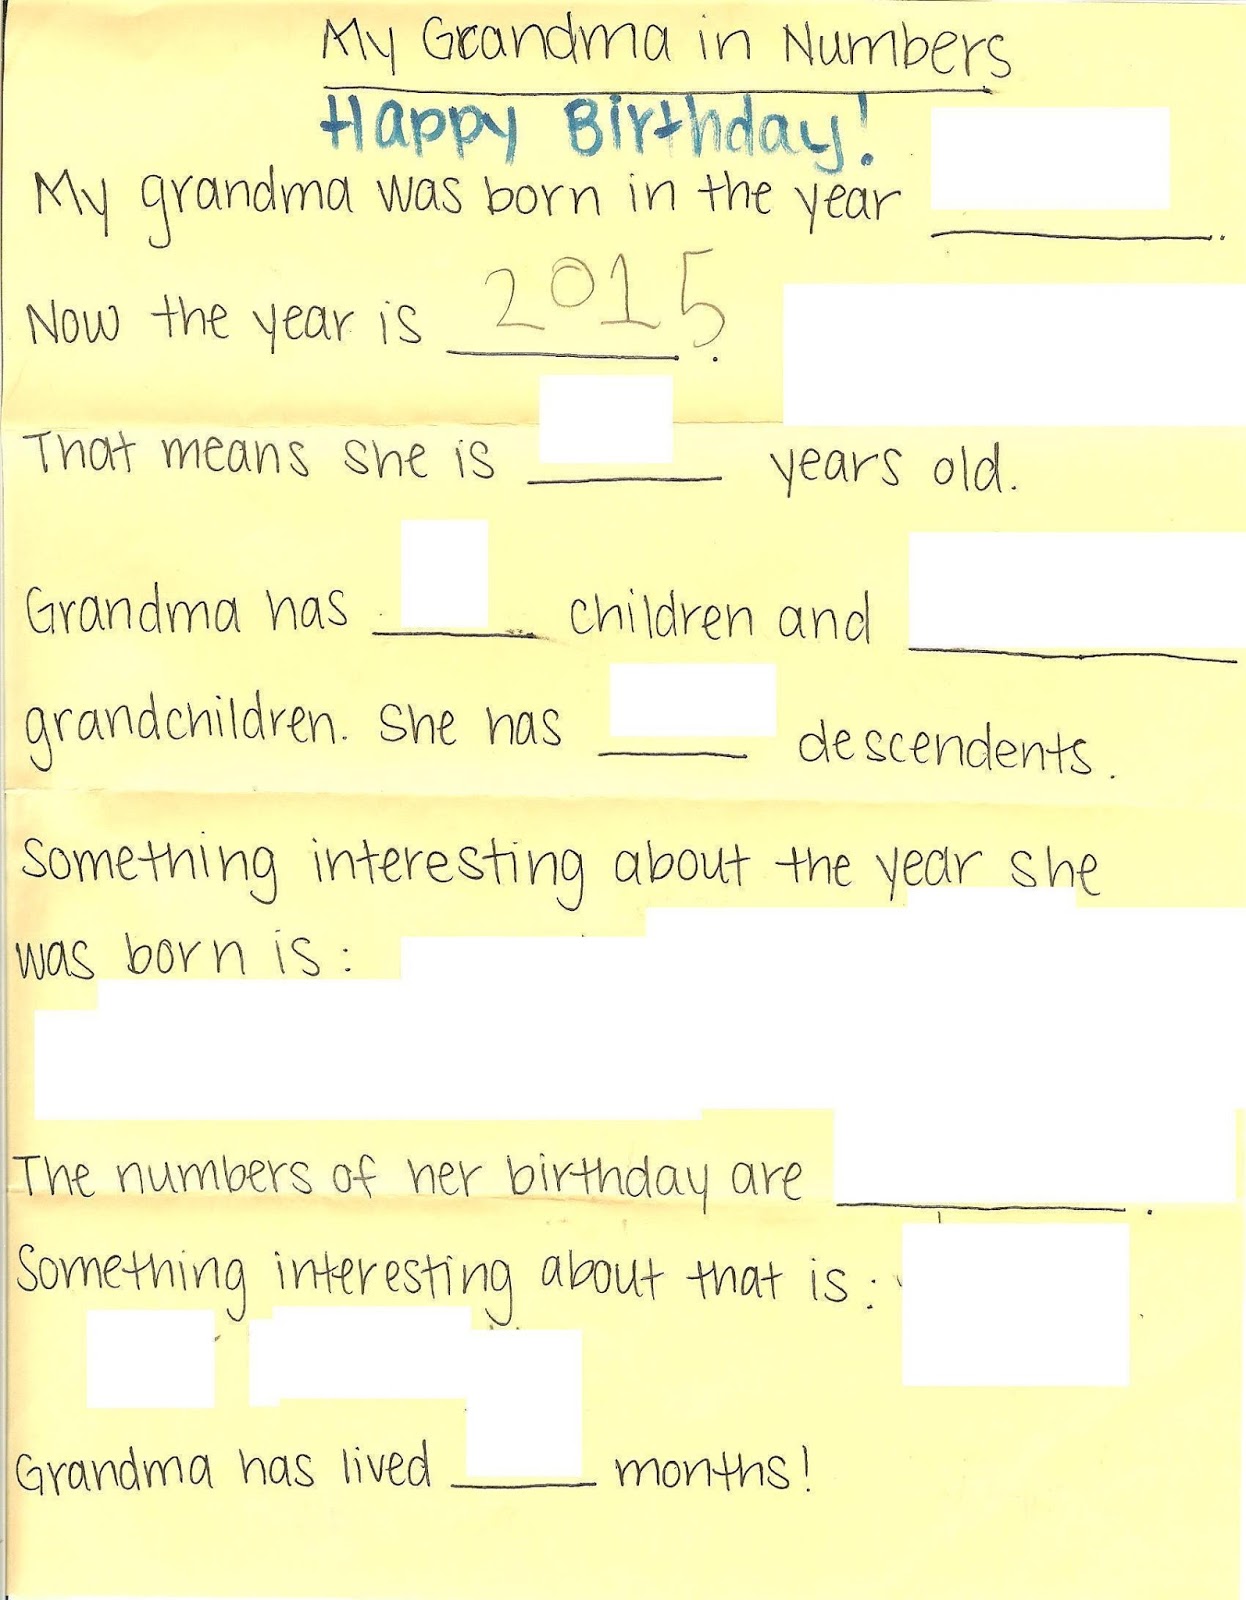 My Grandma in Numbers
Happy Birthday!
My grandma was born in the year ______.
Now the year is 2015.
That means she is ______ years old.
Grandma has ______ children and ______
grandchildren. She has ______ descendents.
Something interesting about the year she
was born is:
The numbers of her birthday are ______.
Something interesting about that is:
Grandma has lived ______ months!